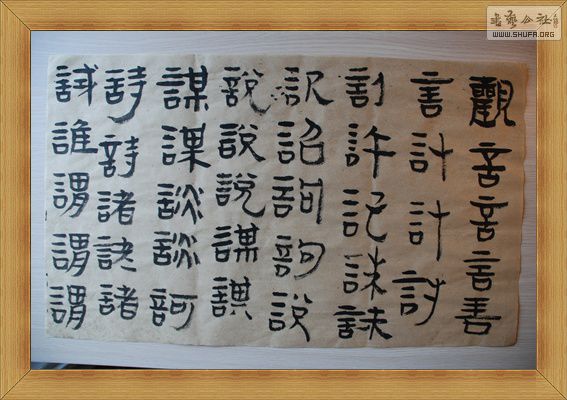 書藝公社
WWW.SHUFA.ORG
觀言言言善
言計計討
許記誅
詔詞詞說
說說說謀
謀謀談談訶
詩詩諸訣諸
誠誰謂謂謂